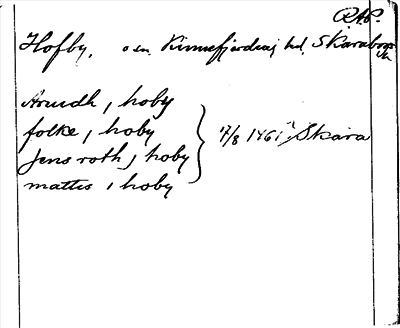 RAP.
Hofby, o en. Kinnefjärding hd, Skaraborgs
län
Arwidh, hoby
folke, hoby
Jens roth, hoby
mattis, hoby
7/8 1461, Skara